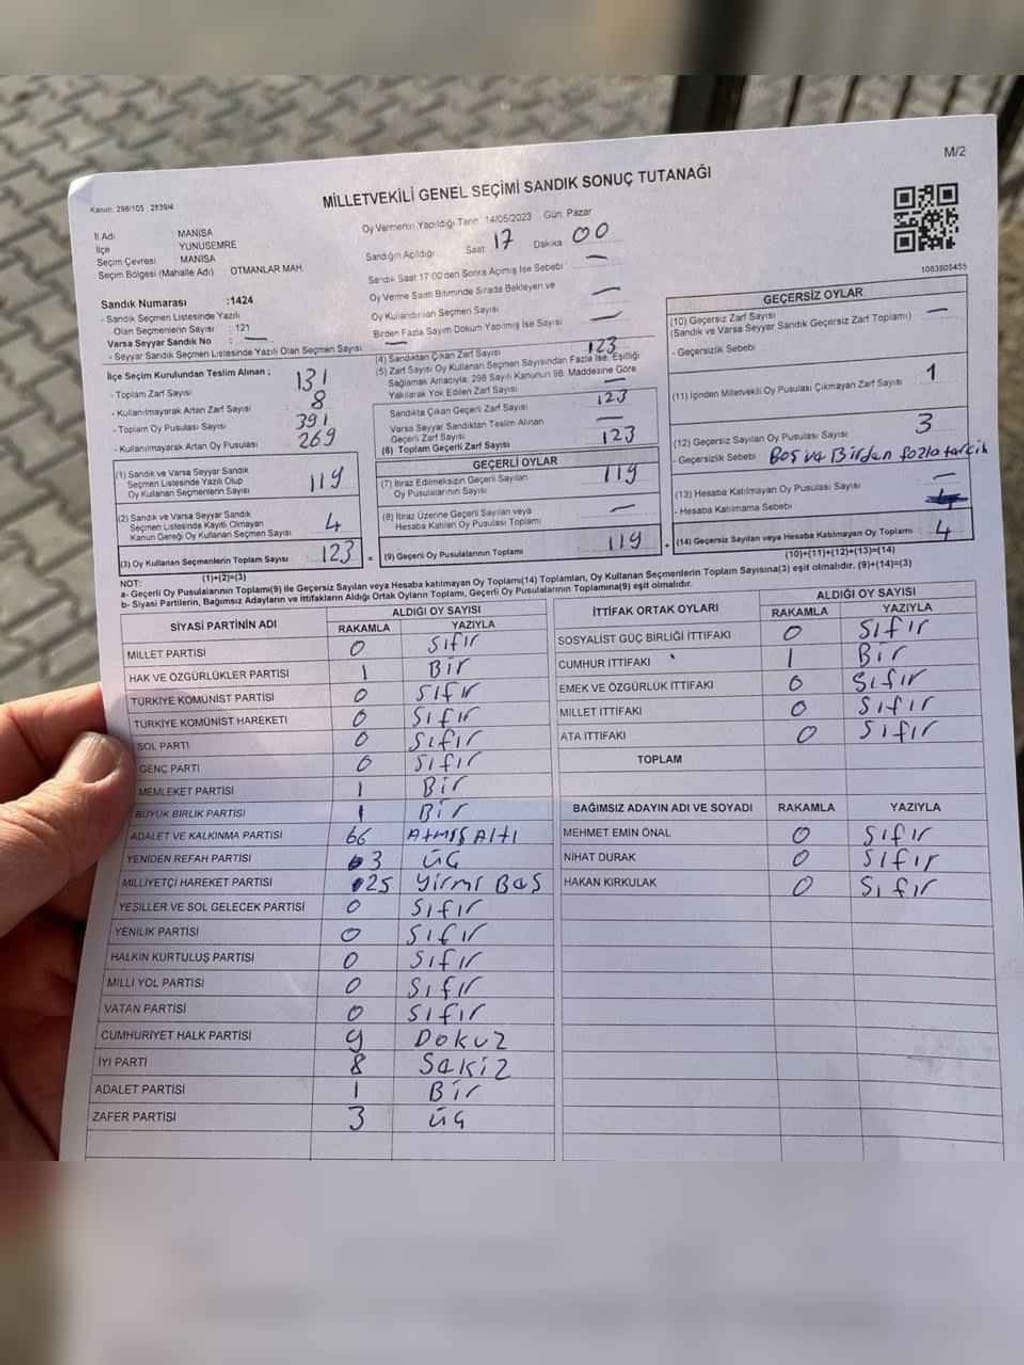 M/2
MİLLETVEKİLİ GENEL SEÇİMİ SANDIK SONUÇ TUTANAĞI
Kanun: 298/105, 2839/4
İl Adı : MANİSA
İlçe : YUNUSEMRE
Seçim Çevresi : MANİSA
Seçim Bölgesi (Mahalle Adı) : OTMANLAR MAH.
Sandık Numarası : 1424
- Sandık Seçmen Listesinde Yazılı
Olan Seçmenlerin Sayısı : 121
Varsa Seyyar Sandık No : —
- Seyyar Sandık Seçmen Listesinde Yazılı Olan Seçmen Sayısı —
Oy Vermenin Yapıldığı Tarih 14/05/2023 Gün: Pazar
Sandığın Açıldığı Saat 17 Dakika 00
Sandık Saat 17.00'den Sonra Açılmış İse Sebebi —
Oy Verme Saati Bitiminde Sırada Bekleyen ve
Oy Kullandırılan Seçmen Sayısı —
Birden Fazla Sayım Döküm Yapılmış İse Sayısı —
1083805455
İlçe Seçim Kurulundan Teslim Alınan ;
- Toplam Zarf Sayısı 131
- Kullanılmayarak Artan Zarf Sayısı 8
- Toplam Oy Pusulası Sayısı 391
- Kullanılmayarak Artan Oy Pusulası 269
(1) Sandık ve Varsa Seyyar Sandık
Seçmen Listesinde Yazılı Olup
Oy Kullanan Seçmenlerin Sayısı 119
(2) Sandık ve Varsa Seyyar Sandık
Seçmen Listesinde Kayıtlı Olmayan
Kanun Gereği Oy Kullanan Seçmen Sayısı 4
(3) Oy Kullanan Seçmenlerin Toplam Sayısı 123 =
(1)+(2)=(3)
(4) Sandıktan Çıkan Zarf Sayısı 123
(5) Zarf Sayısı Oy Kullanan Seçmen Sayısından Fazla İse, Eşitliği
Sağlamak Amacıyla, 298 Sayılı Kanunun 98. Maddesine Göre
Yakılarak Yok Edilen Zarf Sayısı —
Sandıkta Çıkan Geçerli Zarf Sayısı 123
Varsa Seyyar Sandıktan Teslim Alınan
Geçerli Zarf Sayısı —
(6) Toplam Geçerli Zarf Sayısı 123
GEÇERLİ OYLAR
(7) İtiraz Edilmeksizin Geçerli Sayılan
Oy Pusulalarının Sayısı 119
(8) İtiraz Üzerine Geçerli Sayılan veya
Hesaba Katılan Oy Pusulası Toplamı —
(9) Geçerli Oy Pusulalarının Toplamı 119 +
GEÇERSİZ OYLAR
(10) Geçersiz Zarf Sayısı —
(Sandık ve Varsa Seyyar Sandık Geçersiz Zarf Toplamı)
- Geçersizlik Sebebi
(11) İçinden Milletvekili Oy Pusulası Çıkmayan Zarf Sayısı 1
(12) Geçersiz Sayılan Oy Pusulası Sayısı 3
- Geçersizlik Sebebi Boş ve Birden fazla tercih
(13) Hesaba Katılmayan Oy Pusulası Sayısı —
- Hesaba Katılmama Sebebi
(14) Geçersiz Sayılan veya Hesaba Katılmayan Oy Toplamı 4
(10)+(11)+(12)+(13)=(14)
NOT:
a- Geçerli Oy Pusulalarının Toplamı(9) ile Geçersiz Sayılan veya Hesaba katılmayan Oy Toplamı(14) Toplamları, Oy Kullanan Seçmenlerin Toplam Sayısına(3) eşit olmalıdır. (9)+(14)=(3)
b- Siyasi Partilerin, Bağımsız Adayların ve İttifakların Aldığı Ortak Oyların Toplamı, Geçerli Oy Pusulalarının Toplamına(9) eşit olmalıdır.
SİYASİ PARTİNİN ADI ALDIĞI OY SAYISI
RAKAMLA YAZIYLA
MİLLET PARTİSİ 0 Sıfır
HAK VE ÖZGÜRLÜKLER PARTİSİ 1 Bir
TÜRKİYE KOMÜNİST PARTİSİ 0 Sıfır
TÜRKİYE KOMÜNİST HAREKETİ 0 Sıfır
SOL PARTİ 0 Sıfır
GENÇ PARTİ 0 Sıfır
MEMLEKET PARTİSİ 1 Bir
BÜYÜK BİRLİK PARTİSİ 1 Bir
ADALET VE KALKINMA PARTİSİ 66 Atmış Altı
YENİDEN REFAH PARTİSİ 3 üç
MİLLİYETÇİ HAREKET PARTİSİ 25 yirmi Beş
YEŞİLLER VE SOL GELECEK PARTİSİ 0 Sıfır
YENİLİK PARTİSİ 0 Sıfır
HALKIN KURTULUŞ PARTİSİ 0 Sıfır
MİLLİ YOL PARTİSİ 0 Sıfır
VATAN PARTİSİ 0 Sıfır
CUMHURİYET HALK PARTİSİ 9 Dokuz
İYİ PARTİ 8 Sekiz
ADALET PARTİSİ 1 Bir
ZAFER PARTİSİ 3 üç
İTTİFAK ORTAK OYLARI ALDIĞI OY SAYISI
RAKAMLA YAZIYLA
SOSYALİST GÜÇ BİRLİĞİ İTTİFAKI 0 Sıfır
CUMHUR İTTİFAKI 1 Bir
EMEK VE ÖZGÜRLÜK İTTİFAKI 0 Sıfır
MİLLET İTTİFAKI 0 Sıfır
ATA İTTİFAKI 0 Sıfır
TOPLAM
BAĞIMSIZ ADAYIN ADI VE SOYADI RAKAMLA YAZIYLA
MEHMET EMİN ÖNAL 0 Sıfır
NİHAT DURAK 0 Sıfır
HAKAN KIRKULAK 0 Sıfır